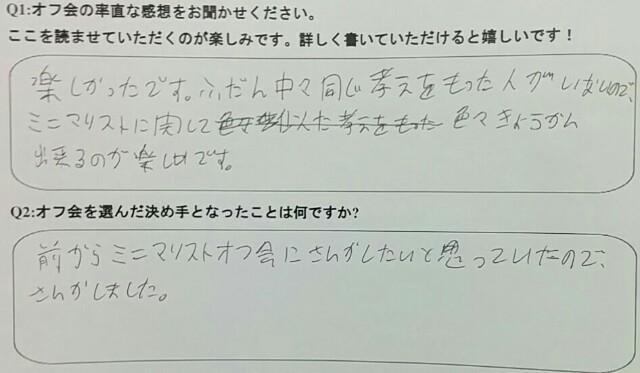 Q1:オフ会の率直な感想をお聞かせください。
ここを読ませていただくのが楽しみです。詳しく書いていただけると嬉しいです！
楽しかったです。ふだん中々同じ考えをもった人がいないので、
ミニマリストに関して 考えをもった 色々きょうかん
出来るのが楽しいです。
Q2:オフ会を選んだ決め手となったことは何ですか?
前からミニマリストオフ会にさんかしたいと思っていたので、
さんかしました。